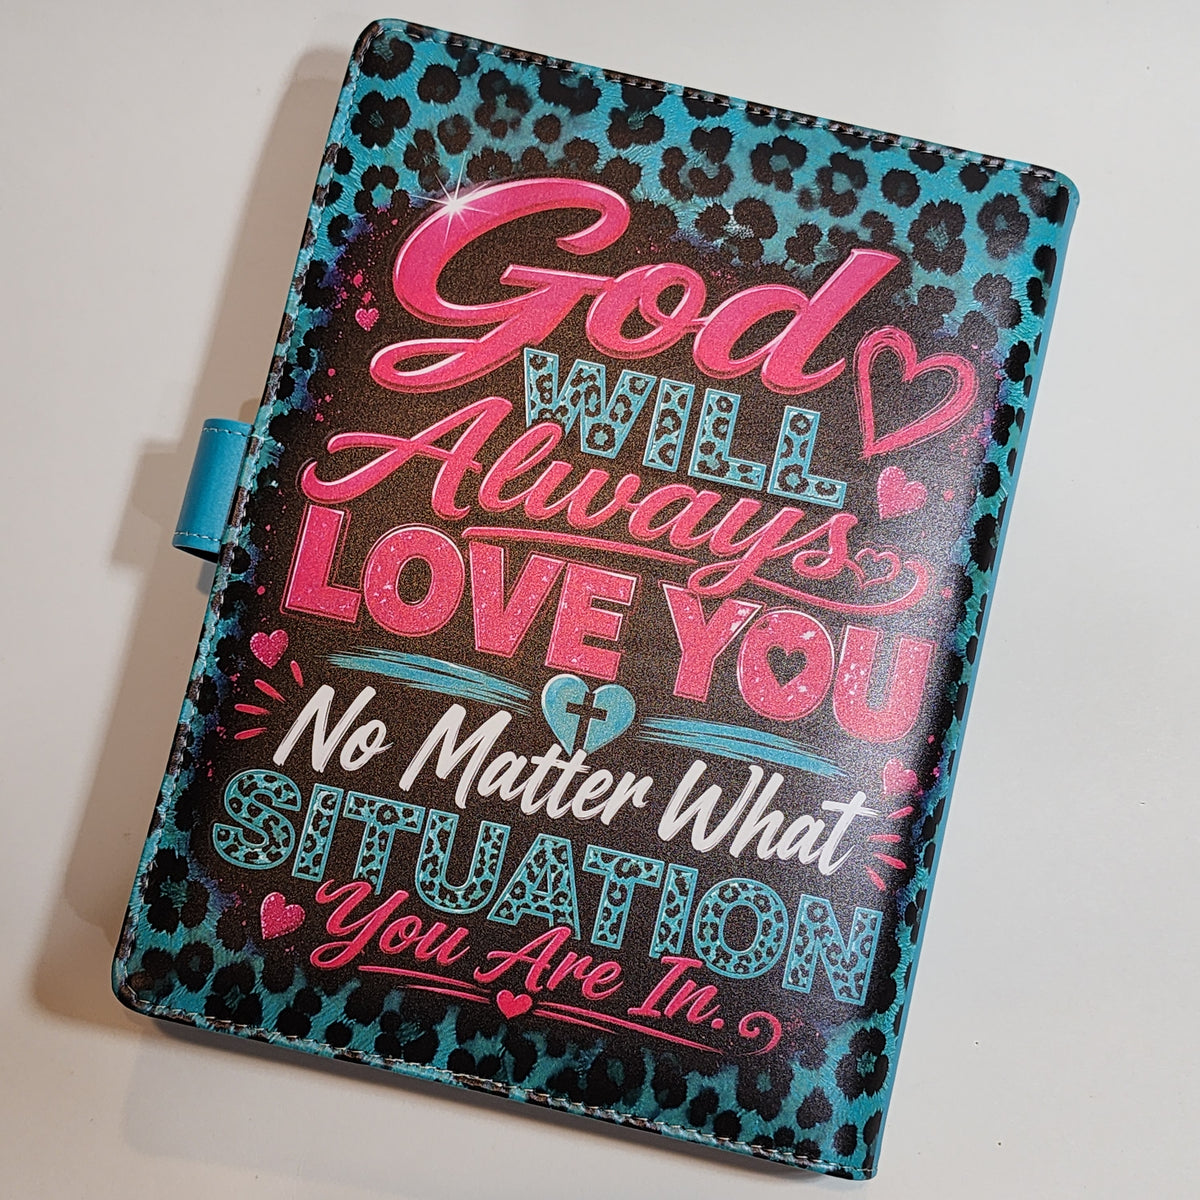 God
WILL
Always
LOVE YOU
No Matter What
SITUATION
You Are In.